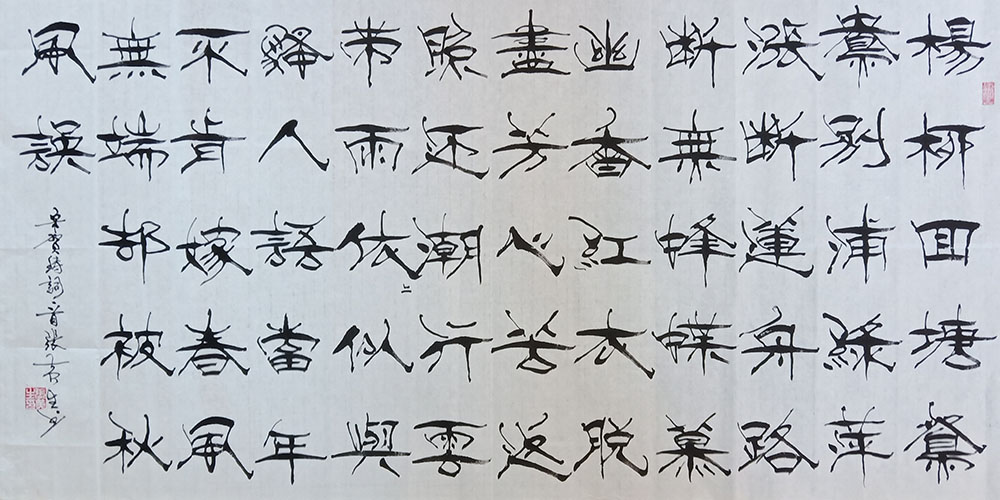 楊柳回塘鴛
鴦別浦綠萍
漲斷蓮舟路
斷無蜂蝶慕
幽香紅衣脫
盡芳心苦返
照迎潮行雲
帶雨依二似與
騷人語當年
不肯嫁春風
無端却被秋
風誤
宋賀鑄詞